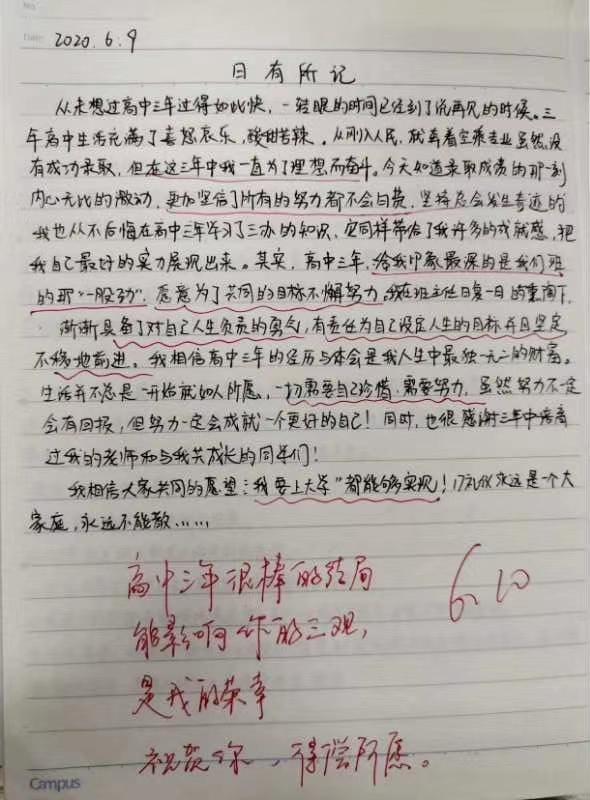 No.
Date 2020.6.9
日有所记
从未想过高中三年过得如此快，一转眼的时间已经到了说再见的时候。三
年高中生活充满了喜怒哀乐，酸甜苦辣。从刚入人民，就奔着空乘专业虽然没
有成功录取，但在这三年中我一直为了理想而奋斗。今天知道录取成员的那一刻
内心无比的激动，更加坚信了所有的努力都不会白费，坚持总会发生奇迹的
我也从不后悔在高中三年学习了三办的知识，它同样带给了我许多的成就感，把
我自己最好的实力展现出来。其实，高中三年，给我印象最深的是我们班
的那"一股劲"，愿意为了共同的目标不懈努力。我在班主任日复一日的熏陶下，
渐渐具备了对自己人生负责的勇气，有责任为自己设定人生的目标并且坚定
不移地前进。我相信高中三年的经历与体会是我人生中最独一无二的财富。
生活并不总是一开始就如人所愿，一切需要自己珍惜，需要努力，虽然努力不一定
会有回报，但努力一定会成就一个更好的自己！同时，也很感谢三年中
过我的老师和与我共成长的同学们！
我相信大家共同的愿望："我要上大学"都能够实现！17礼仪永远是一个大
家庭，永远不能散……
高中三年很棒的结局
能影响你的三观，
是我的荣幸
祝贺你，得偿所愿。
6.10
Campus